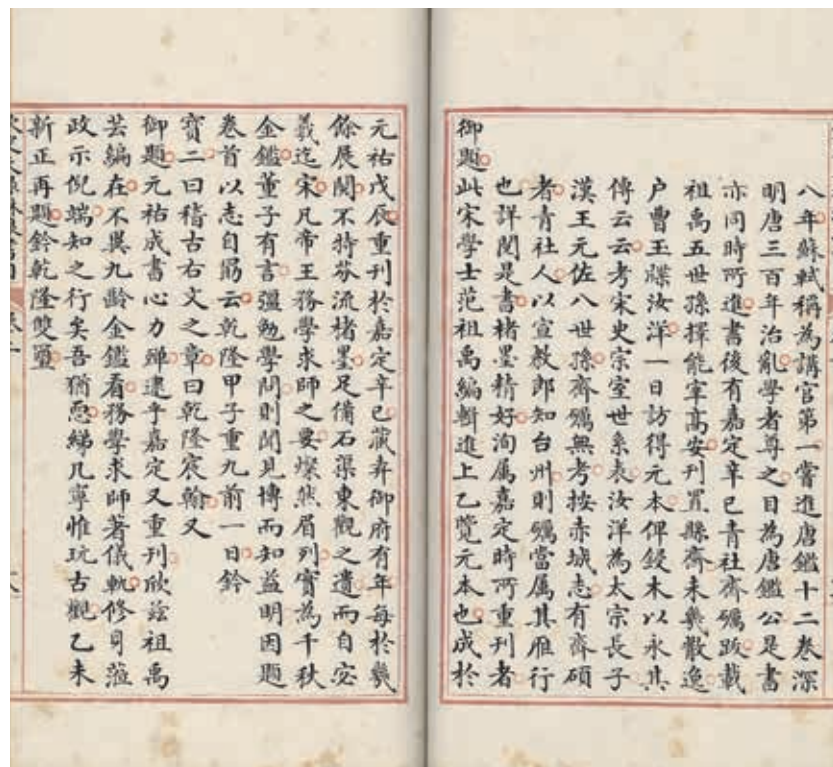 八年蘇軾稱為講官第一嘗進唐鑑十二卷深
明唐三百年治亂學者尊之目為唐鑑公是書
亦同時所進書後有嘉定辛巳青社齊礪跋載
祖禹五世孫擇能宰高安刊置縣齋未幾散逸
户曹王牒汝洋一日訪得元本俾鋟木以永其
傳云云考宋史宗室世系表汝洋為太宗長子
漢王元佐八世孫齊礪無考按赤城志有齊碩
者青社人以宣教郎知台州則礪當属其雁行
也詳閱是書楮墨精好洵属嘉定時所重刊者
御題此宋學士范祖禹編輯進上乙覽元本也成於
元祐戊辰重刊於嘉定辛巳藏弆御府有年每於幾
餘展閱不特芬流楮墨足備石渠東觀之遺而自宓
羲迄宋凡帝王務學求師之要燦然眉列實為千秋
金鑑董子有言彊勉學問則聞見博而知益明因題
卷首以志自勗云乾隆甲子重九前一日鈐
寶二曰稽古右文之章曰乾隆宸翰又
御題元祐成書心力殫逮乎嘉定又重刊欣兹祖禹
芸編在不異九齡金鑑看務學求師著儀軌修身蒞
政示倪端知之行矣吾猶恧綈几寧惟玩古觀乙未
新正再題鈐乾隆雙璽